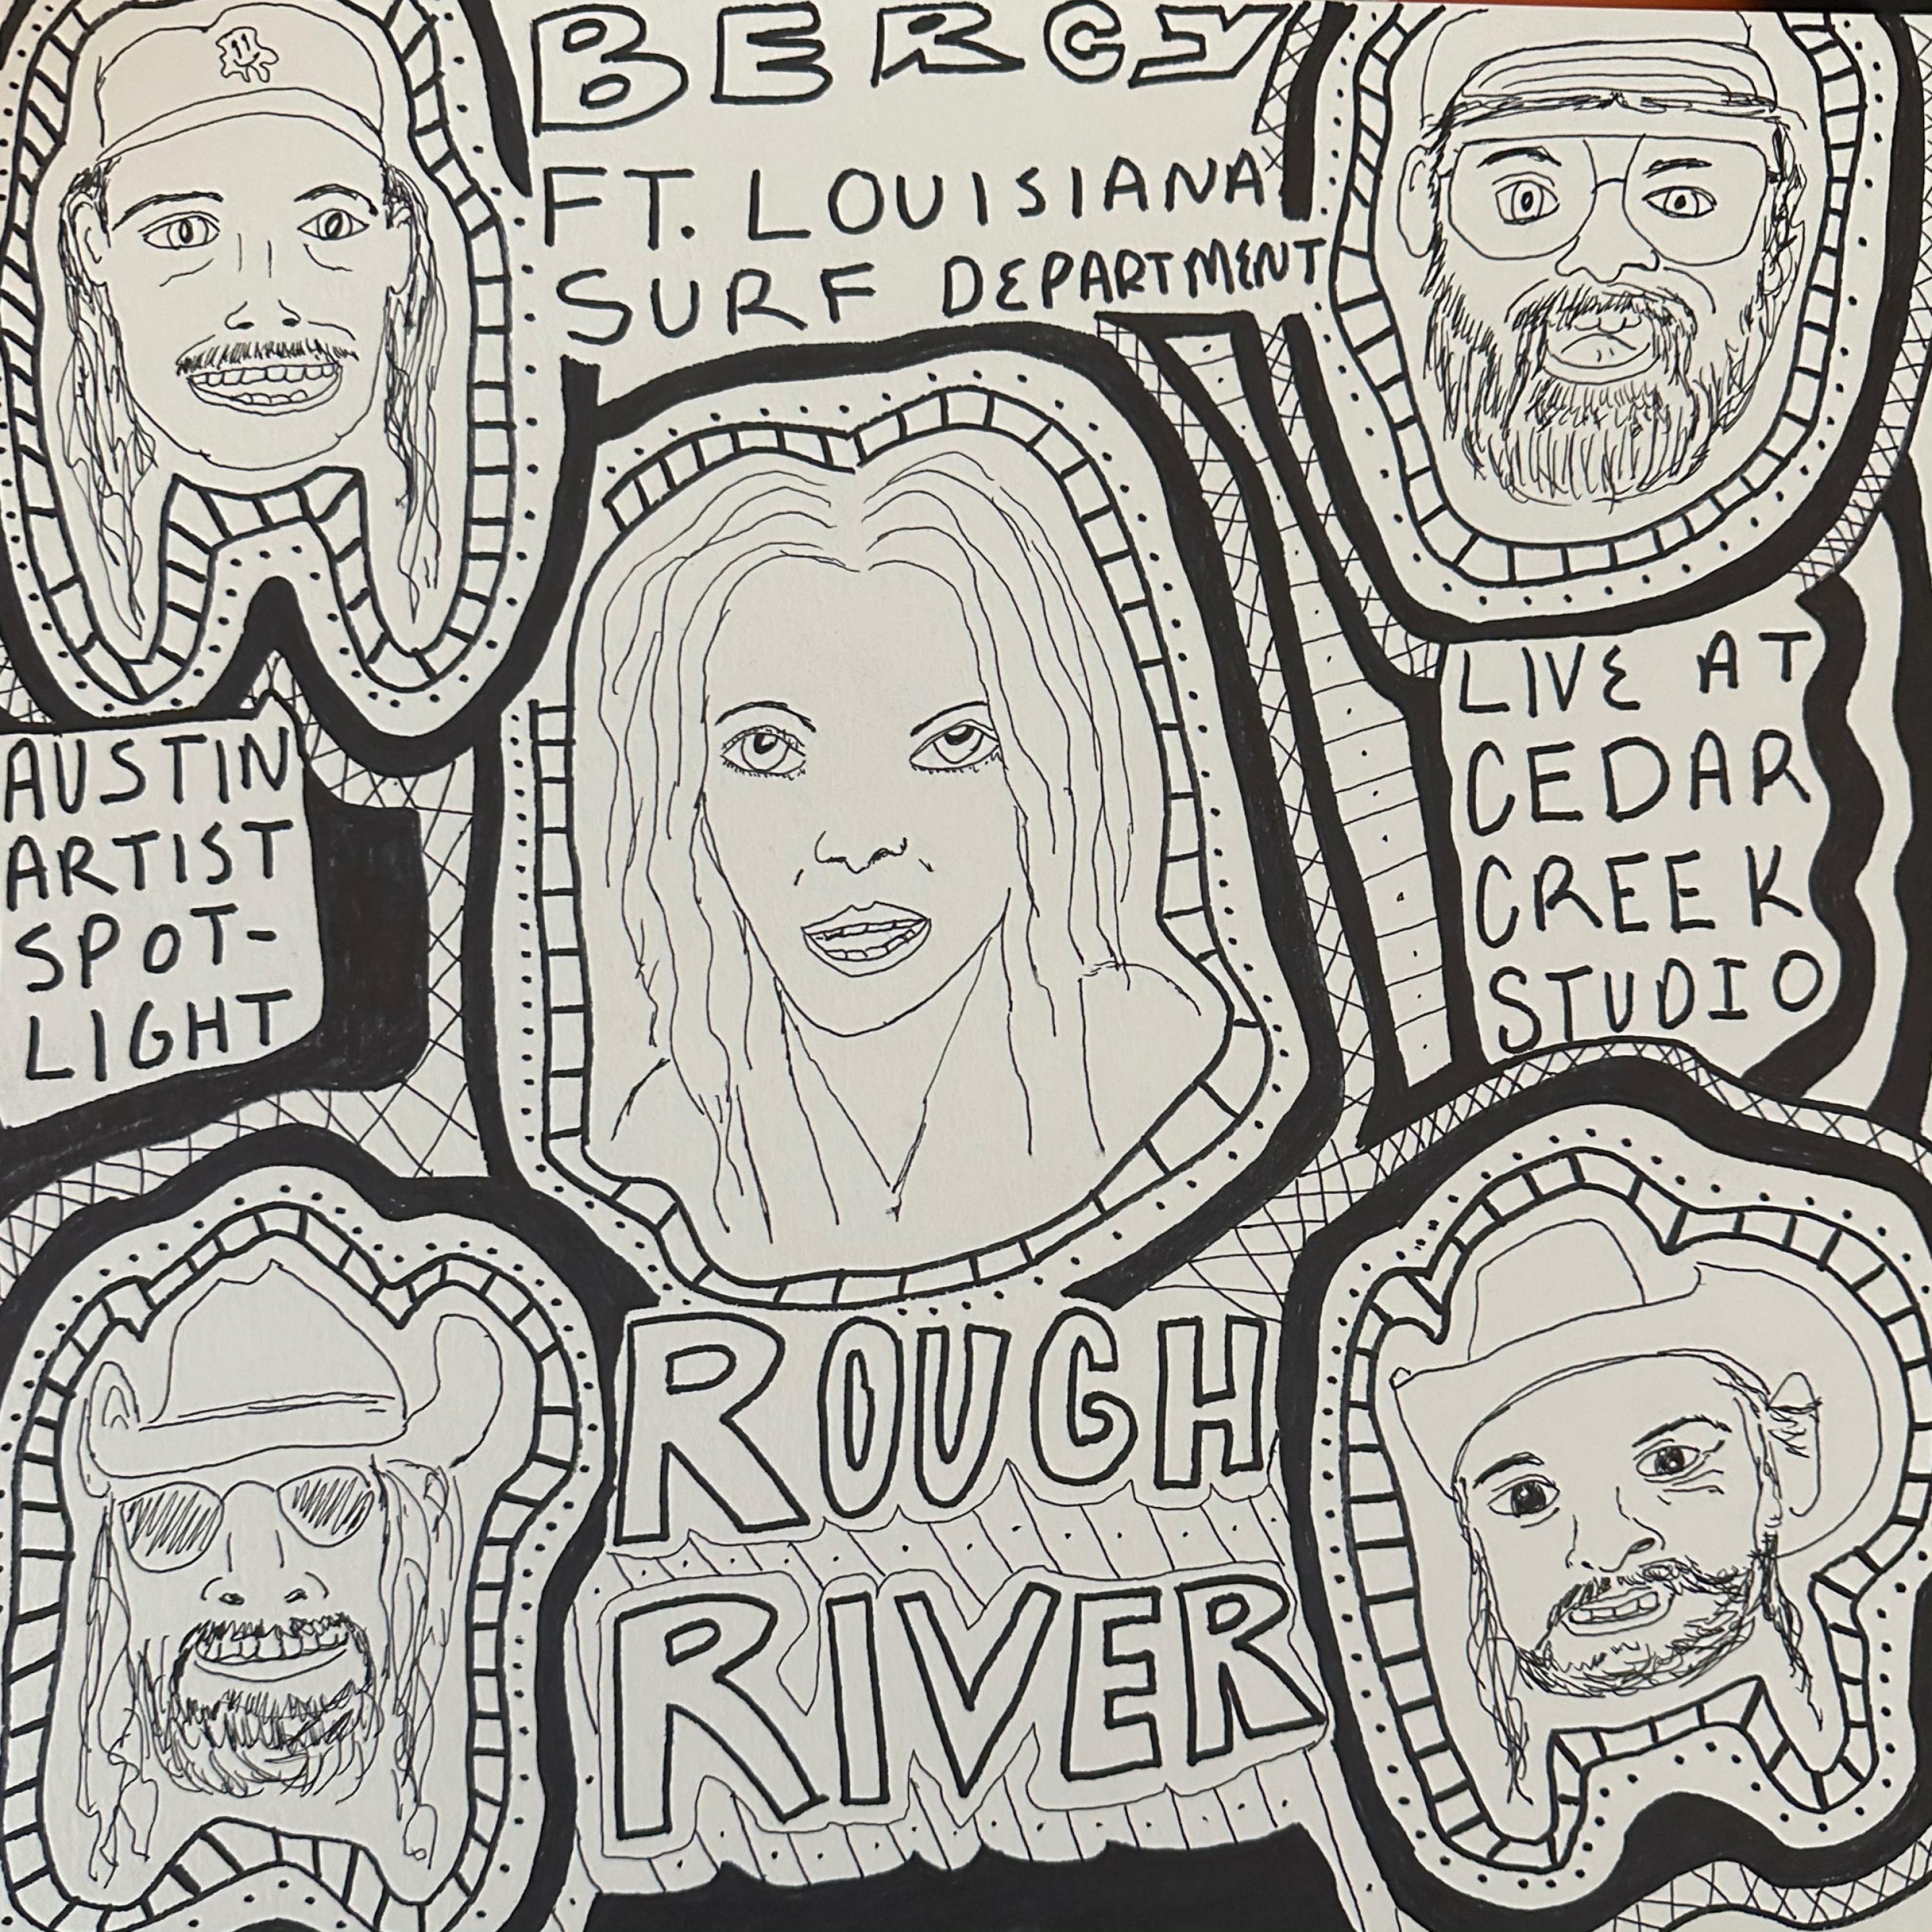 BERCY
FT. LOUISIANA
SURF DEPARTMENT
AUSTIN
ARTIST
SPOT-
LIGHT
LIVE AT
CEDAR
CREEK
STUDIO
ROUGH
RIVER